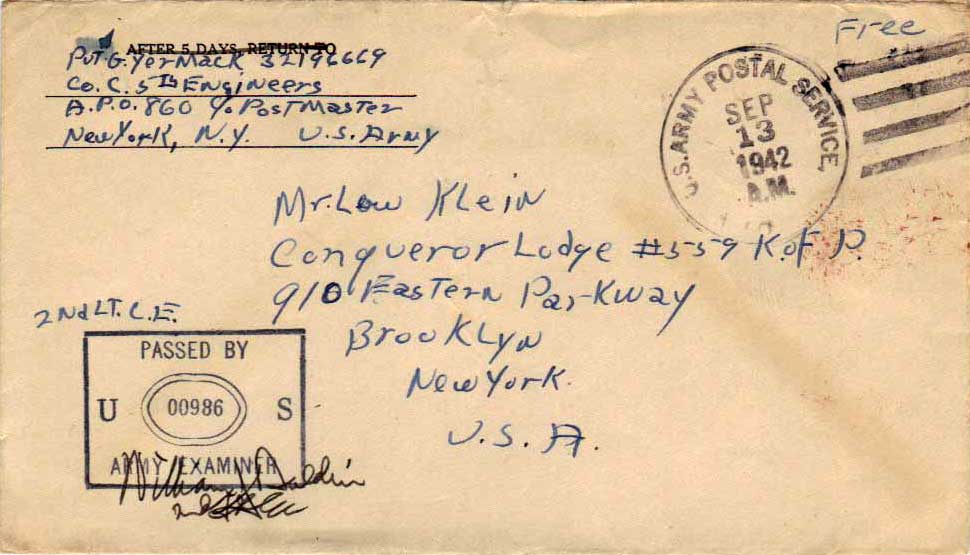 Free
AFTER 5 DAYS, RETURN TO
Pvt G. Yermack 32196669
Co. C. 5th Engineers
A.P.O. 860 c/o PostMaster
New York, N.Y. U.S. Army
U.S. ARMY POSTAL SERVICE,
SEP
13
1942
A.M.
Mr. Lou Klein
Conqueror Lodge #559 K. of P.
910 Eastern Parkway
Brooklyn
New York.
U.S.A.
2nd LT. C.E.
PASSED BY
U 00986 S
ARMY EXAMINER
William J Baldwin